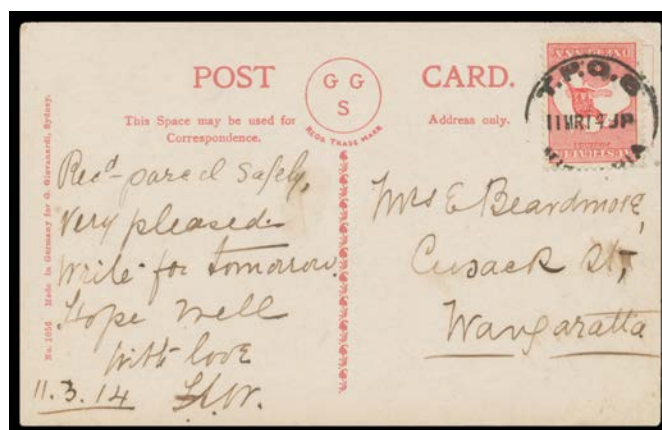 POST CARD.
G G
S
REGD. TRADE MARK
This Space may be used for
Correspondence.
Address only.
No. 1056 Made in Germany for G. Giovanardi, Sydney.
Rec'd parcel safely,
very pleased
write for tomorrow.
Hope well
with love
11.3.14
Mrs E Beardmore,
Cusack St,
Wangaratta
T.P.O.
11 MR 14